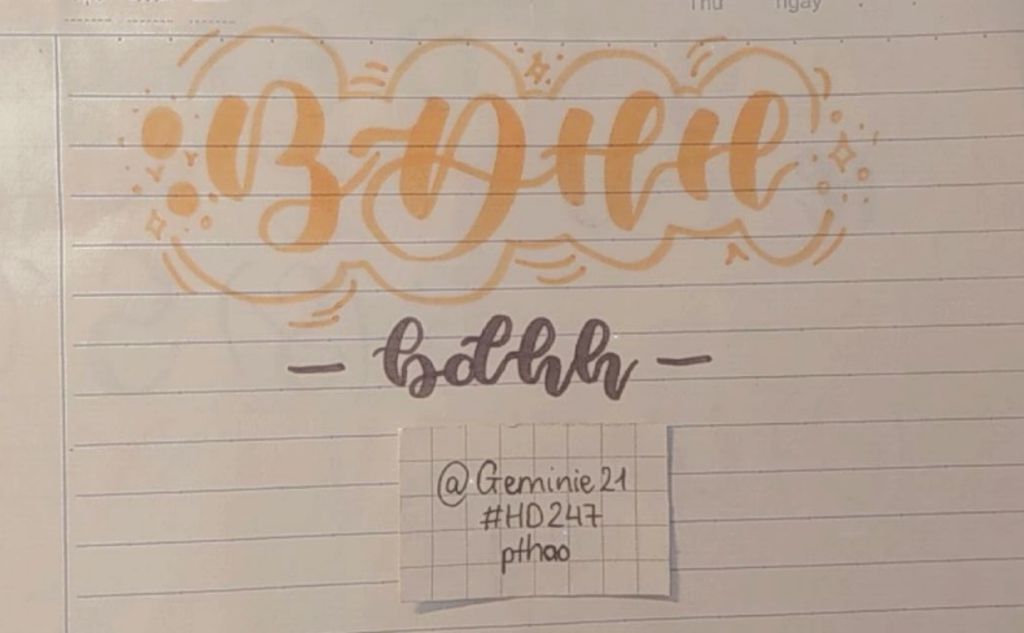 Thứ ngày
BDHH
- bdhh -
@Geminie21
#HD247
pthao